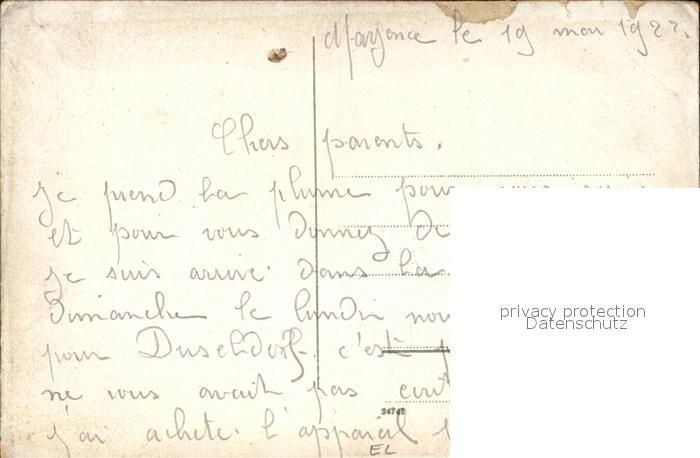 Mayence le 19 mai 1922.
Chers parents.
je prend la plume pour
et pour vous donnez de
je suis arrivé dans la
Dimanche le lundi
pour Duseldorf. c'est
ne vous avait pas
j'ai acheté l'appareil
privacy protection
Datenschutz
24747
EL